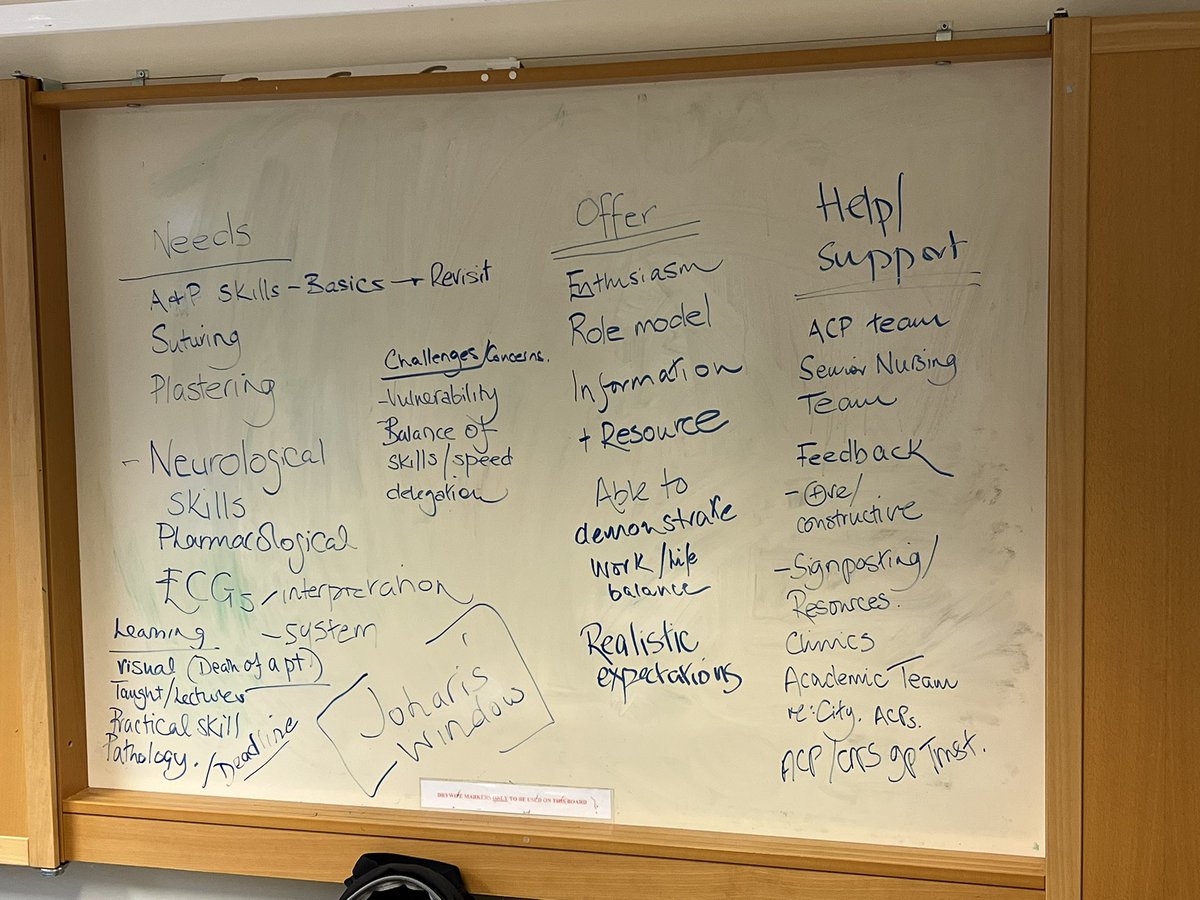 Needs
A+P Skills - Basics → Revisit
Suturing
Plastering
- Neurological
Skills
Pharmacological
ECGs / interpretation
- System
Learning
visual (Death of a pt)
Taught/Lectures
Practical skill
Pathology. / Deadline
Challenges/Concerns.
- Vulnerability
- Balance of
skills/speed
delegation
Joharis
window
Offer
Enthusiasm
Role model
Information
+ Resource
Able to
demonstrate
work/life
balance
Realistic
expectations
Help/
Support
ACP team
Senior Nursing
Team
Feedback
- +ve/
constructive
- Signposting/
Resources.
Clinics
Academic Team
re: City. ACPs.
ACP/ gp Trust.
DRYWIPE MARKERS ONLY TO BE USED ON THIS BOARD